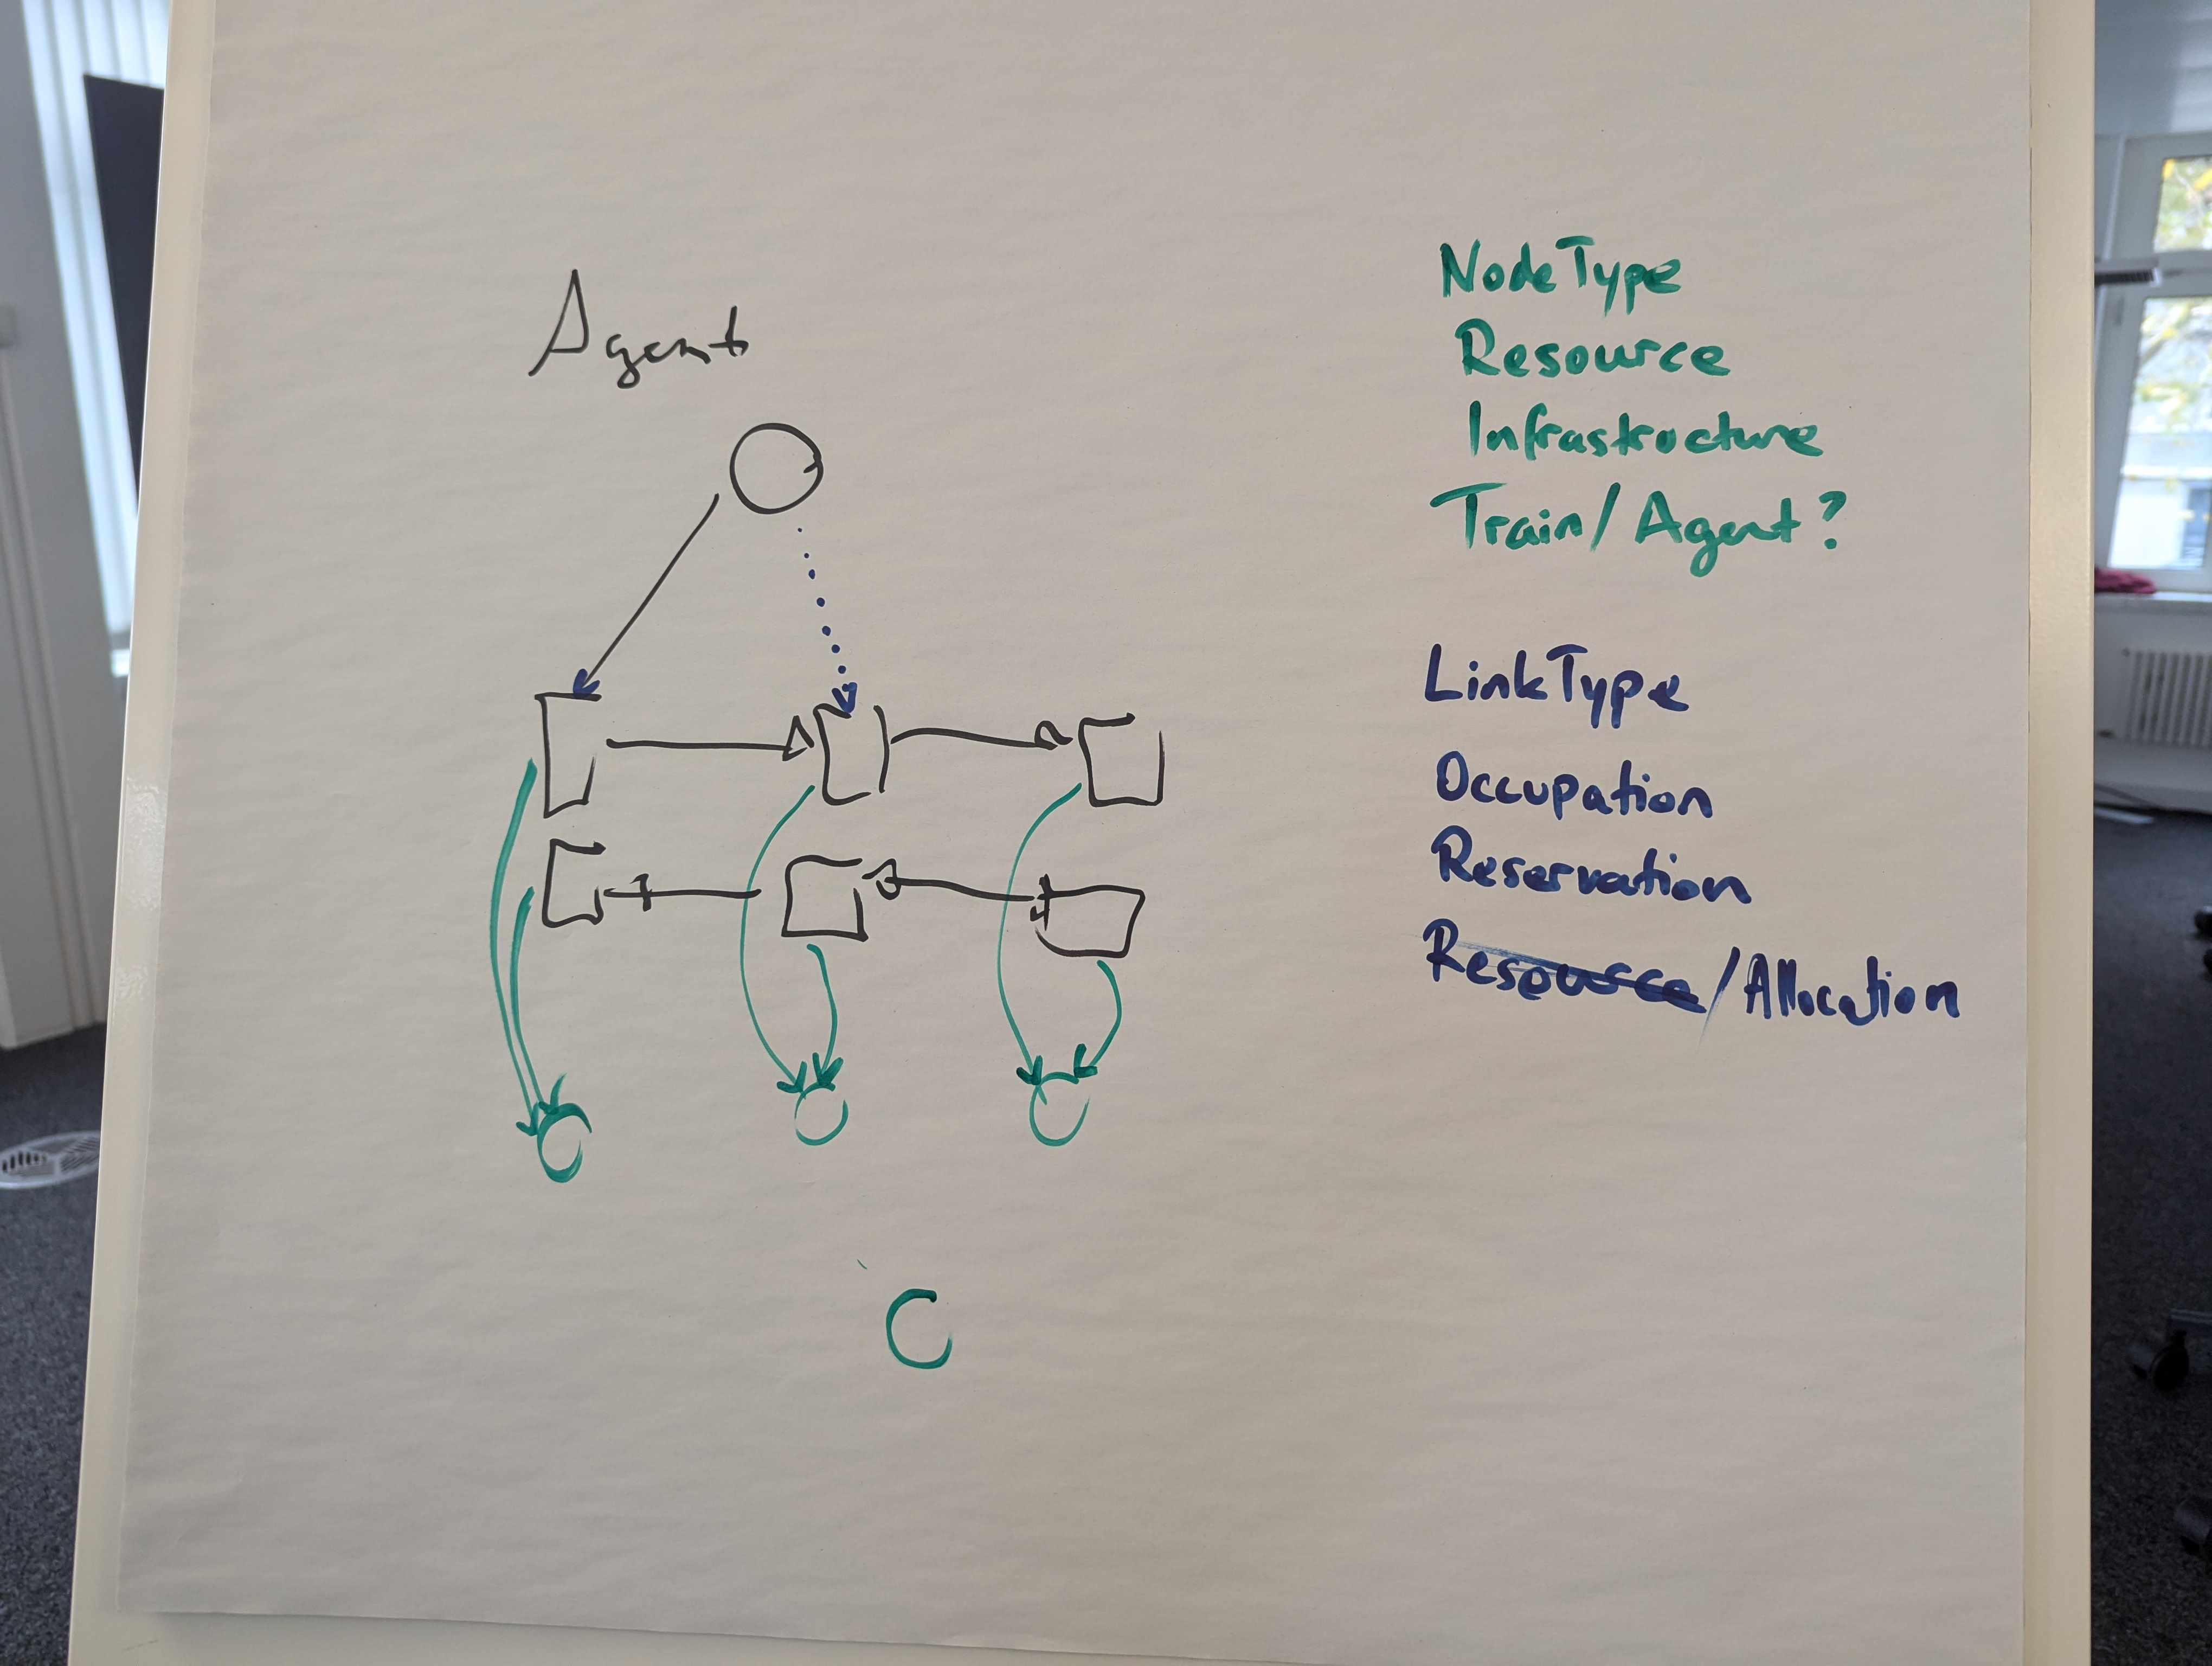 Agent
NodeType
Resource
Infrastructure
Train/Agent?
LinkType
Occupation
Reservation
Resource/Allocation